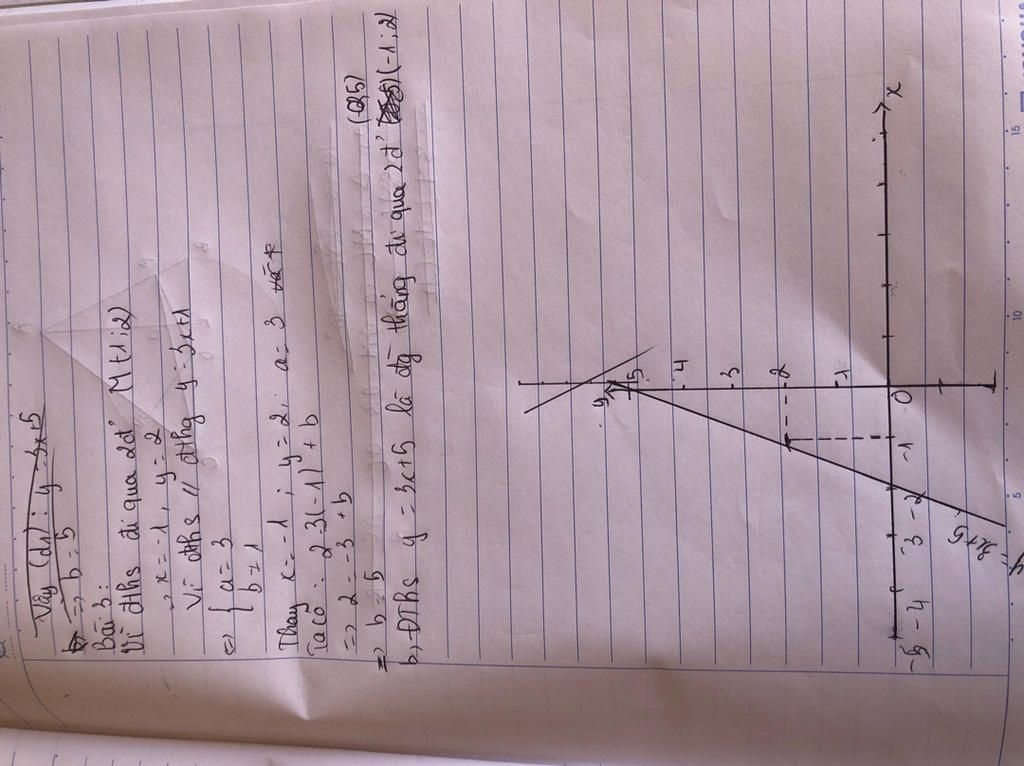 Vậy (d1): y = 3x+5
=> b = 5
Bài 3:
Vì đths đi qua 2đ' M(-1;2)
-> x = -1, y = 2
Vì đths // đthg y = 3x+1
=> { a = 3
b ≠ 1
Thay x = -1; y = 2; a = 3
Ta có: 2 = 3(-1) + b
=> 2 = -3 + b
=> b = 5
(0,5)
b, ĐTHS y = 3x+5 là đg thẳng đi qua 2đ' (-1;2)
y
5
4
3
2
1
O
x
-1
-2
-3
-4
-5
y = 3x+5
5
10
15